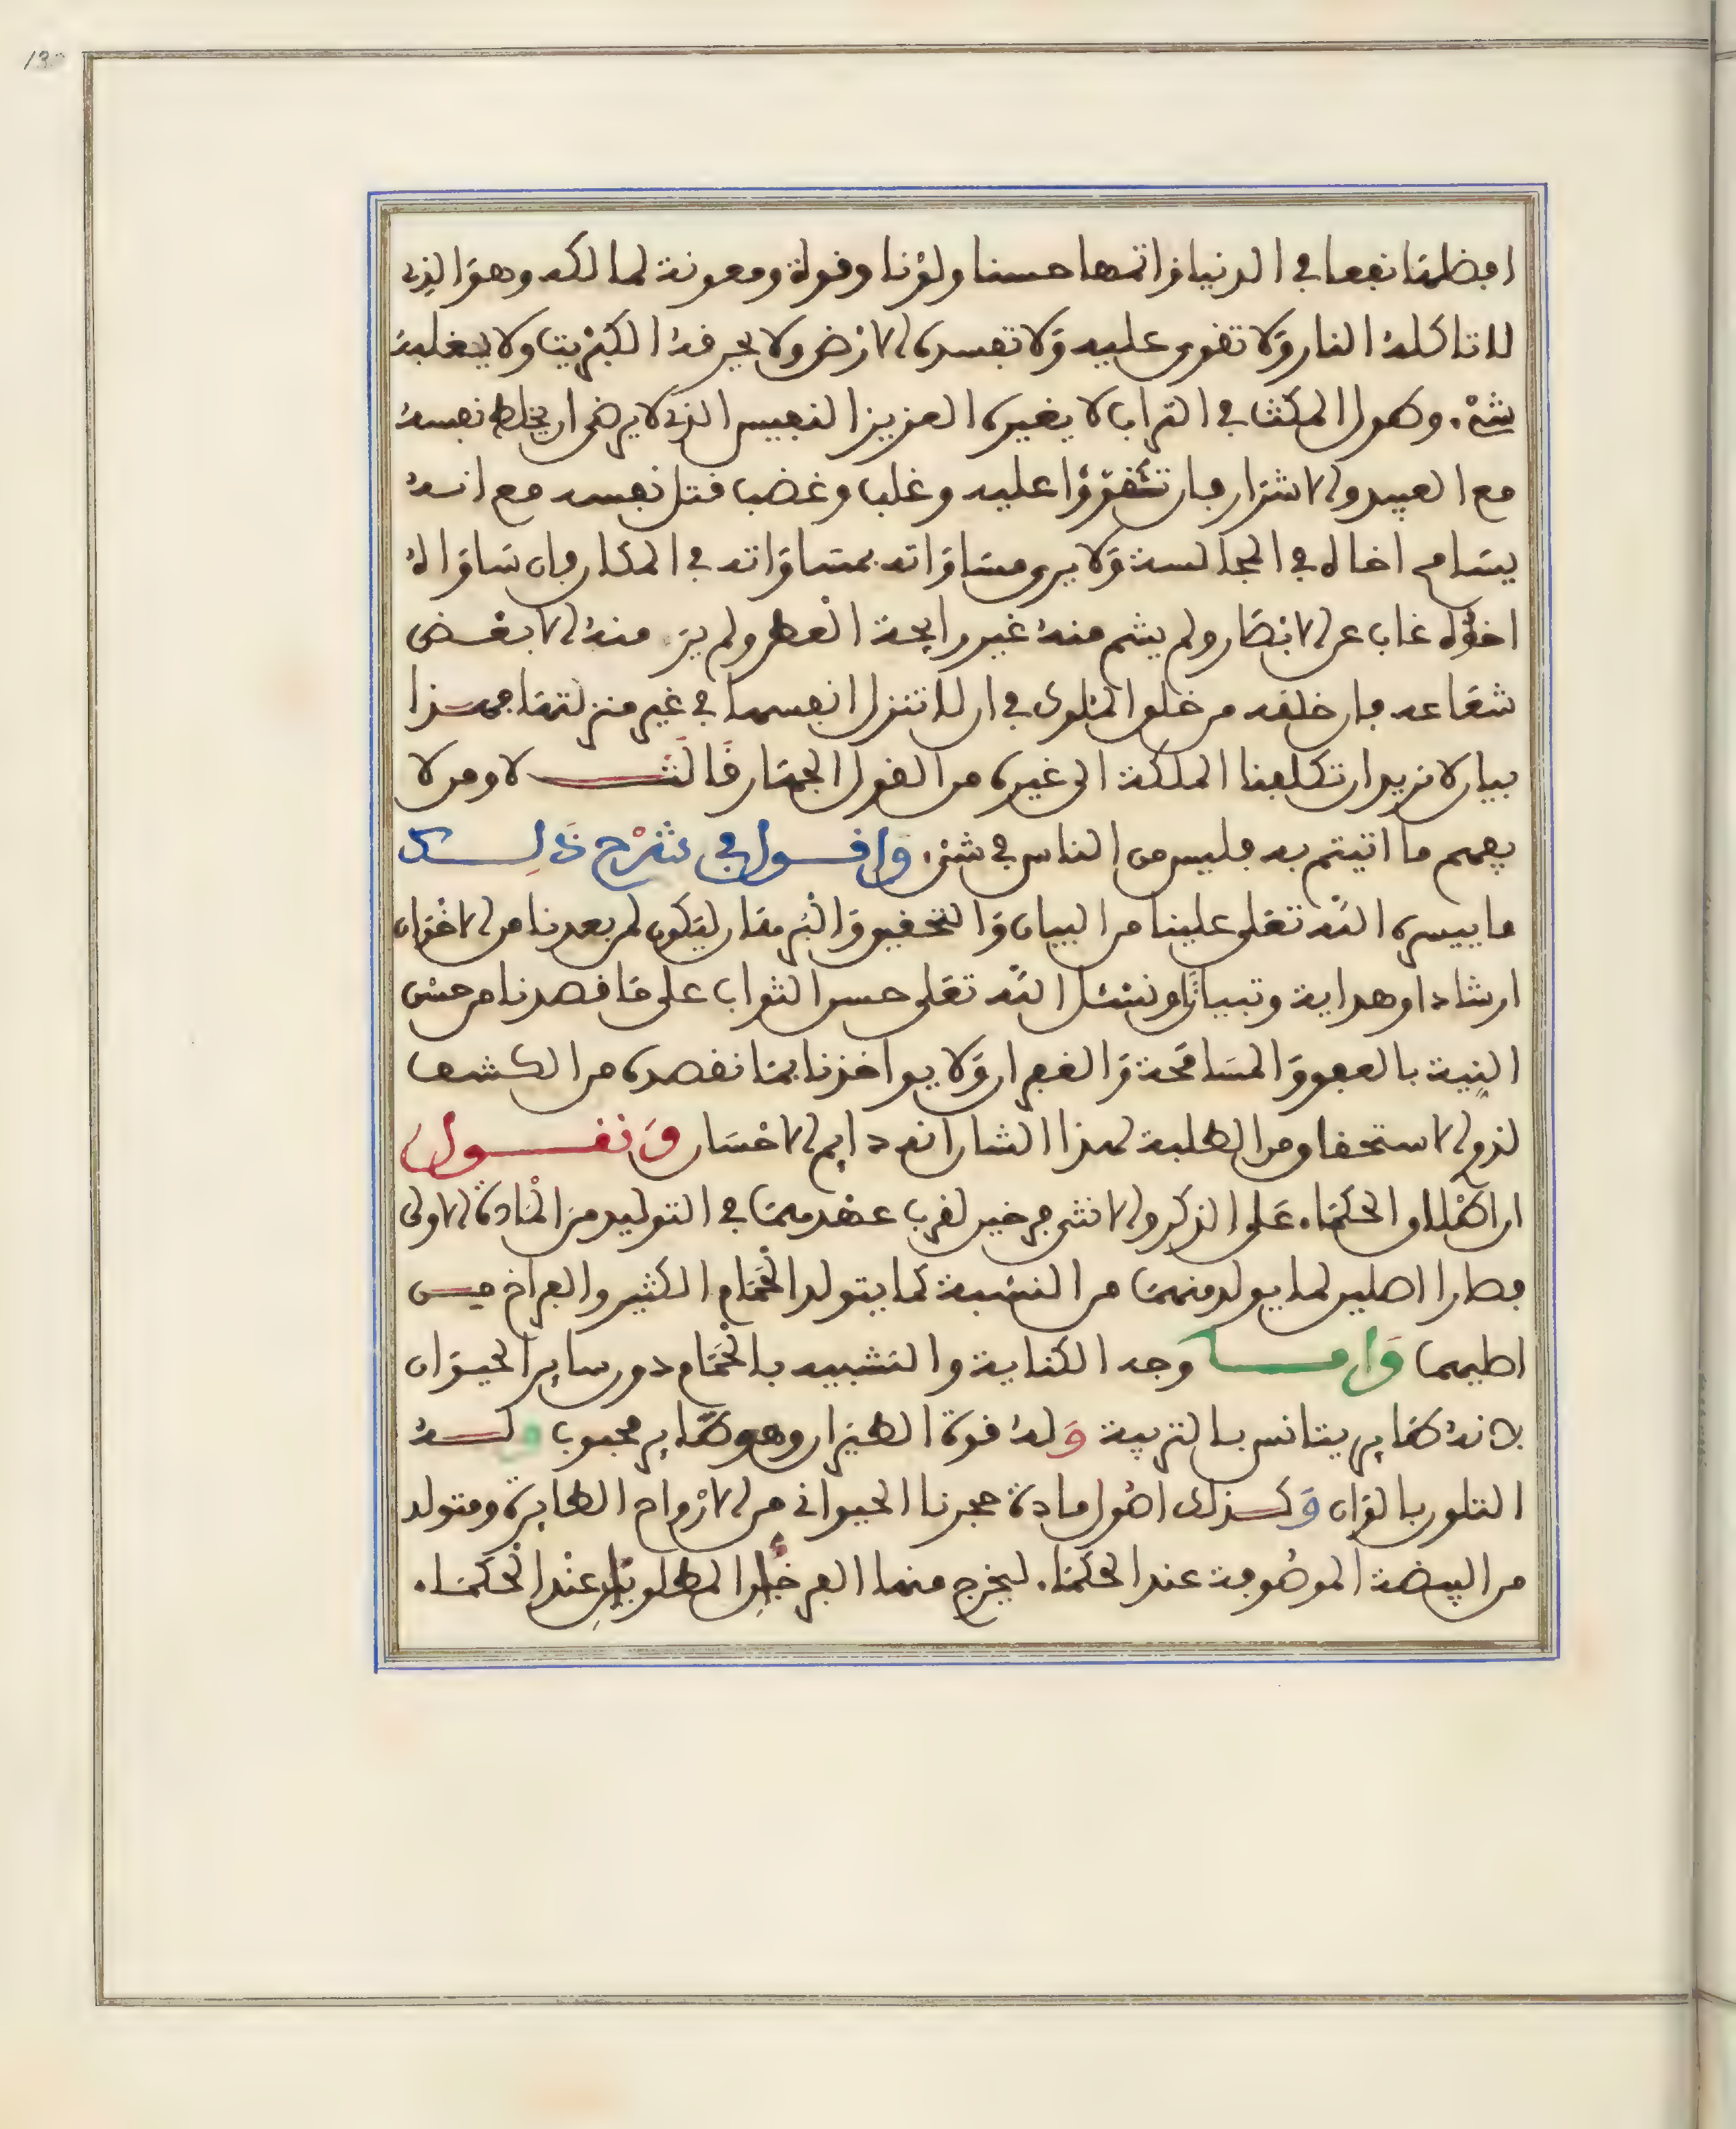 افضلها نفعا في الدنيا واتمها حسنا ولونا وقوة ومعونة لمالكه وهو الذي
لا تاكله النار ولا تقوى عليه ولا تفسده الارض ولا يحرقه الكبريت ولا يغلبه
شيء. وطول المكث في التراب لا يغيره العزيز النفيس الذي لا يرضى ان يخلط نفسه
مع العبيد والاشرار فان تقووا عليه وغلب وغضب قتل نفسه مع انه
يسامح اخاه في المجالسة ولا يرى مساواته بمساواته في المكان فان ساواه
اخوه غاب عن الابصار ولم يشم منه غير رايحة العطر ولم ير منه الا بعض
شعاعه فان خلقه من خلق الملوك في ان لا تنزل انفسها في غير منزلتها فهذا
بيان لا نريد ان تكلفنا الملكة الى غيره من القول الجهار قالت لا ومن لا
يفهم ما اتيتم به فليس من الناس في شيء. واقول في شرح ذلك
ما ييسره الله تعلى علينا من البيان والتحقيق والبرهان ليكون لمن بعدنا من الاخوان
ارشادا وهداية وتبيانا ونسئل الله تعلى حسن الثواب على ما قصدنا من حسن
النية بالعفو والمسامحة والغفران ولا يواخذنا بما نقصده من الكشف
لذوي الاستحقاق من الطلبة لهذا الشان انه دايم الاحسان ونقول
ان اطلاق الحكماء. على الذكر والانثى فرخين لقرب عهدهما في التوليد من المادة الاولى
فصارا اصلين لما يولد منهما من النسبة كما يتولد الحمام الكثير والفراخ من
اصلهما واما وجه الكناية والتشبيه بالحمام دون ساير الحيوان
لانه طاير يتانس بالتربية وله قوة الطيران وهو طاير محبوب وله
التلون بالوان وكذلك اصول مادة حجرنا الحيواني من الارواح الطايرة ومتولد
من البيضة الموصوفة عند الحكماء. ليخرج منها الفرخان المطلوبان عند الحكماء.